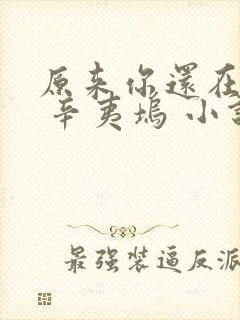 原来你還在
辛夷塢 小説
最强装逼反派